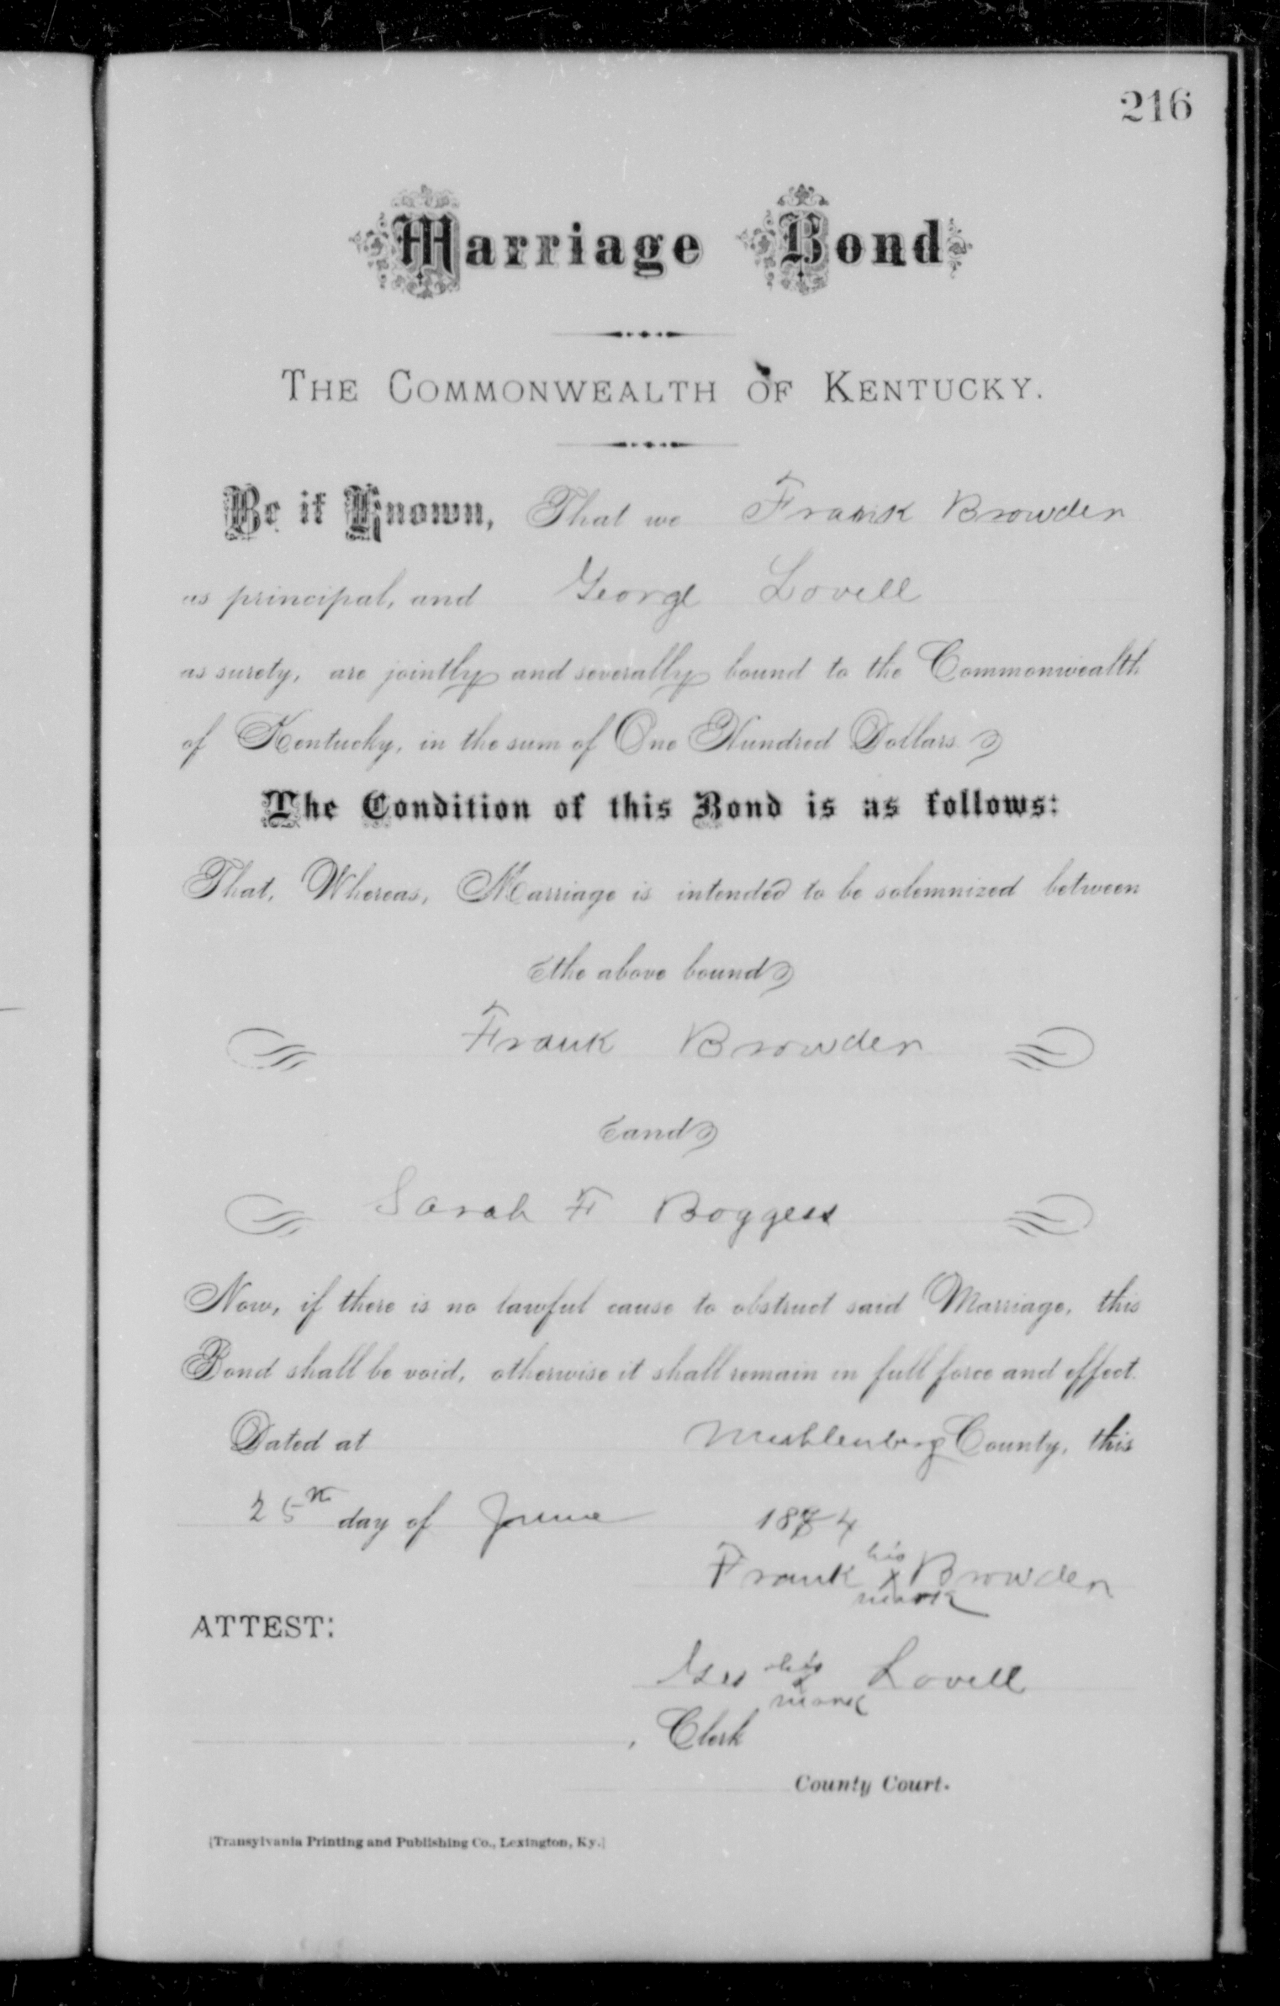 216
Marriage Bond
THE COMMONWEALTH OF KENTUCKY.
Be it Known, That we Frank Browder
as principal, and George Lovell
as surety, are jointly and severally bound to the Commonwealth
of Kentucky, in the sum of One Hundred Dollars.
The Condition of this Bond is as follows:
That, Whereas, Marriage is intended to be solemnized between
the above bound
Frank Browder
and
Sarah F Boggess
Now, if there is no lawful cause to obstruct said Marriage, this
Bond shall be void, otherwise it shall remain in full force and effect.
Dated at Muhlenberg County, this
25th day of June 1884
his
Frank X Browder
mark
ATTEST:
his
Geo X Lovell
mark
, Clerk
County Court.
[Transylvania Printing and Publishing Co., Lexington, Ky.]